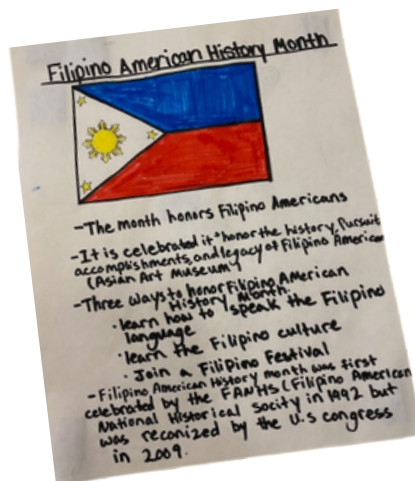 Filipino American History Month
-The month honors Filipino Americans
-It is celebrated it "honor the history, Pursuit
accomplishments, and legacy of Filipino American
(Asian Art Museum)
-Three ways to honor Filipino American
History Month.
· learn how to speak the Filipino
language
· learn the Filipino culture
· Join a Filipino Festival
- Filipino American History month was first
celebrated by the FANHS (Filipino American
National Historical socity in 1992 but
was reconized by the U.S congress
in 2009.